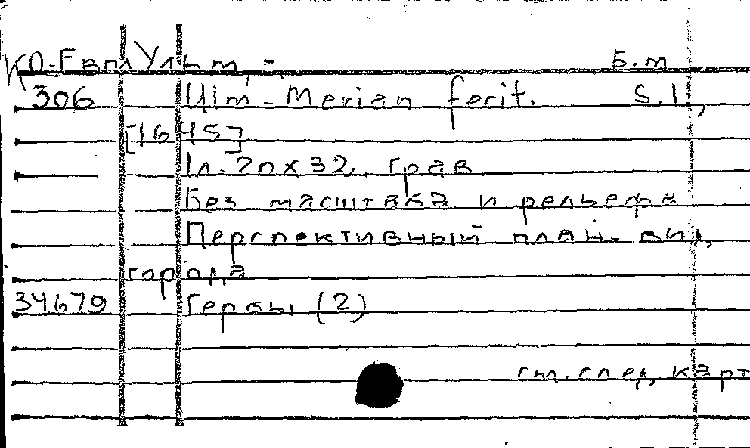 КО-Евп Ульм, - Б.м
306 Ulm - Merian fecit. S.l.,
[1645]
1л. 20х32. грав
Без масштаба и рельефа
Перспективный план-вид
города
34679 Гербы (2)
см. след. карт